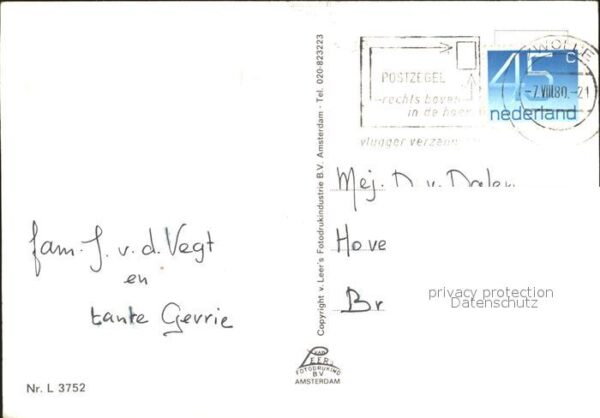 POSTZEGEL
rechts boven
in de hoek
vlugger verzen
ZWOLLE
-7.VIII.80.-21
45c
nederland
Copyright v. Leer's Fotodrukindustrie B.V. Amsterdam - Tel. 020-823223
Mej. D. v. Dalen
Hove
Br
privacy protection
Datenschutz
fam. J. v. d. Vegt
en
tante Gerrie
VAN
LEER's
FOTODRUKIND
B.V.
AMSTERDAM
Nr. L 3752